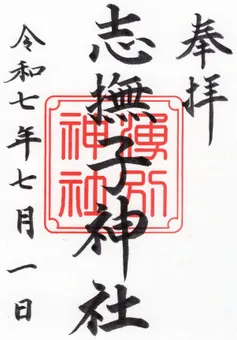 奉拝
志撫子神社
湧別
神社
令和七年七月一日